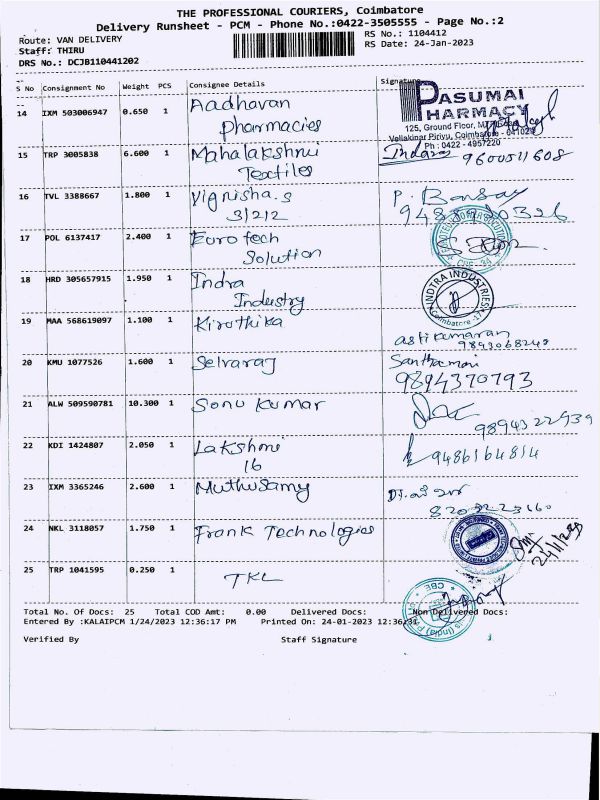 THE PROFESSIONAL COURIERS, Coimbatore
Delivery Runsheet - PCM - Phone No.:0422-3505555 - Page No.:2
Route: VAN DELIVERY RS No.: 1104412
Staff: THIRU RS Date: 24-Jan-2023
DRS No.: DCJB110441202
S No Consignment No Weight PCS Consignee Details Signature
PASUMAI
PHARMACY
14 IXM 503006947 0.650 1 Aadhavan
Pharmacies
125, Ground Floor,
Vellakinar Pirivu, Coimbatore - 641029
Ph : 0422 - 4957220
15 TRP 3005838 6.600 1 Mahalakshmi 9600511608
Textiles
16 TVL 3388667 1.800 1 Vignisha.s
3/212
17 POL 6137417 2.400 1 Eurotech
Solution
18 HRD 305657915 1.950 1 Indra
Industry
INDTRA INDUSTRIES
Coimbatore
19 MAA 568619097 1.100 1 Kiruthika
20 KMU 1077526 1.600 1 Selvaraj
9894370793
21 ALW 509590781 10.300 1 Sonu Kumar
9894322939
22 KDI 1424807 2.050 1 Lakshmi
16
9486164814
23 IXM 3365246 2.600 1 Muthusamy
24 NKL 3118057 1.750 1 Frank Technologies
24/1/23
25 TRP 1041595 0.250 1 TKL
CBE
Total No. Of Docs: 25 Total COD Amt: 0.00 Delivered Docs: Non Delivered Docs:
Entered By :KALAIPCM 1/24/2023 12:36:17 PM Printed On: 24-01-2023 12:36:31
Verified By Staff Signature